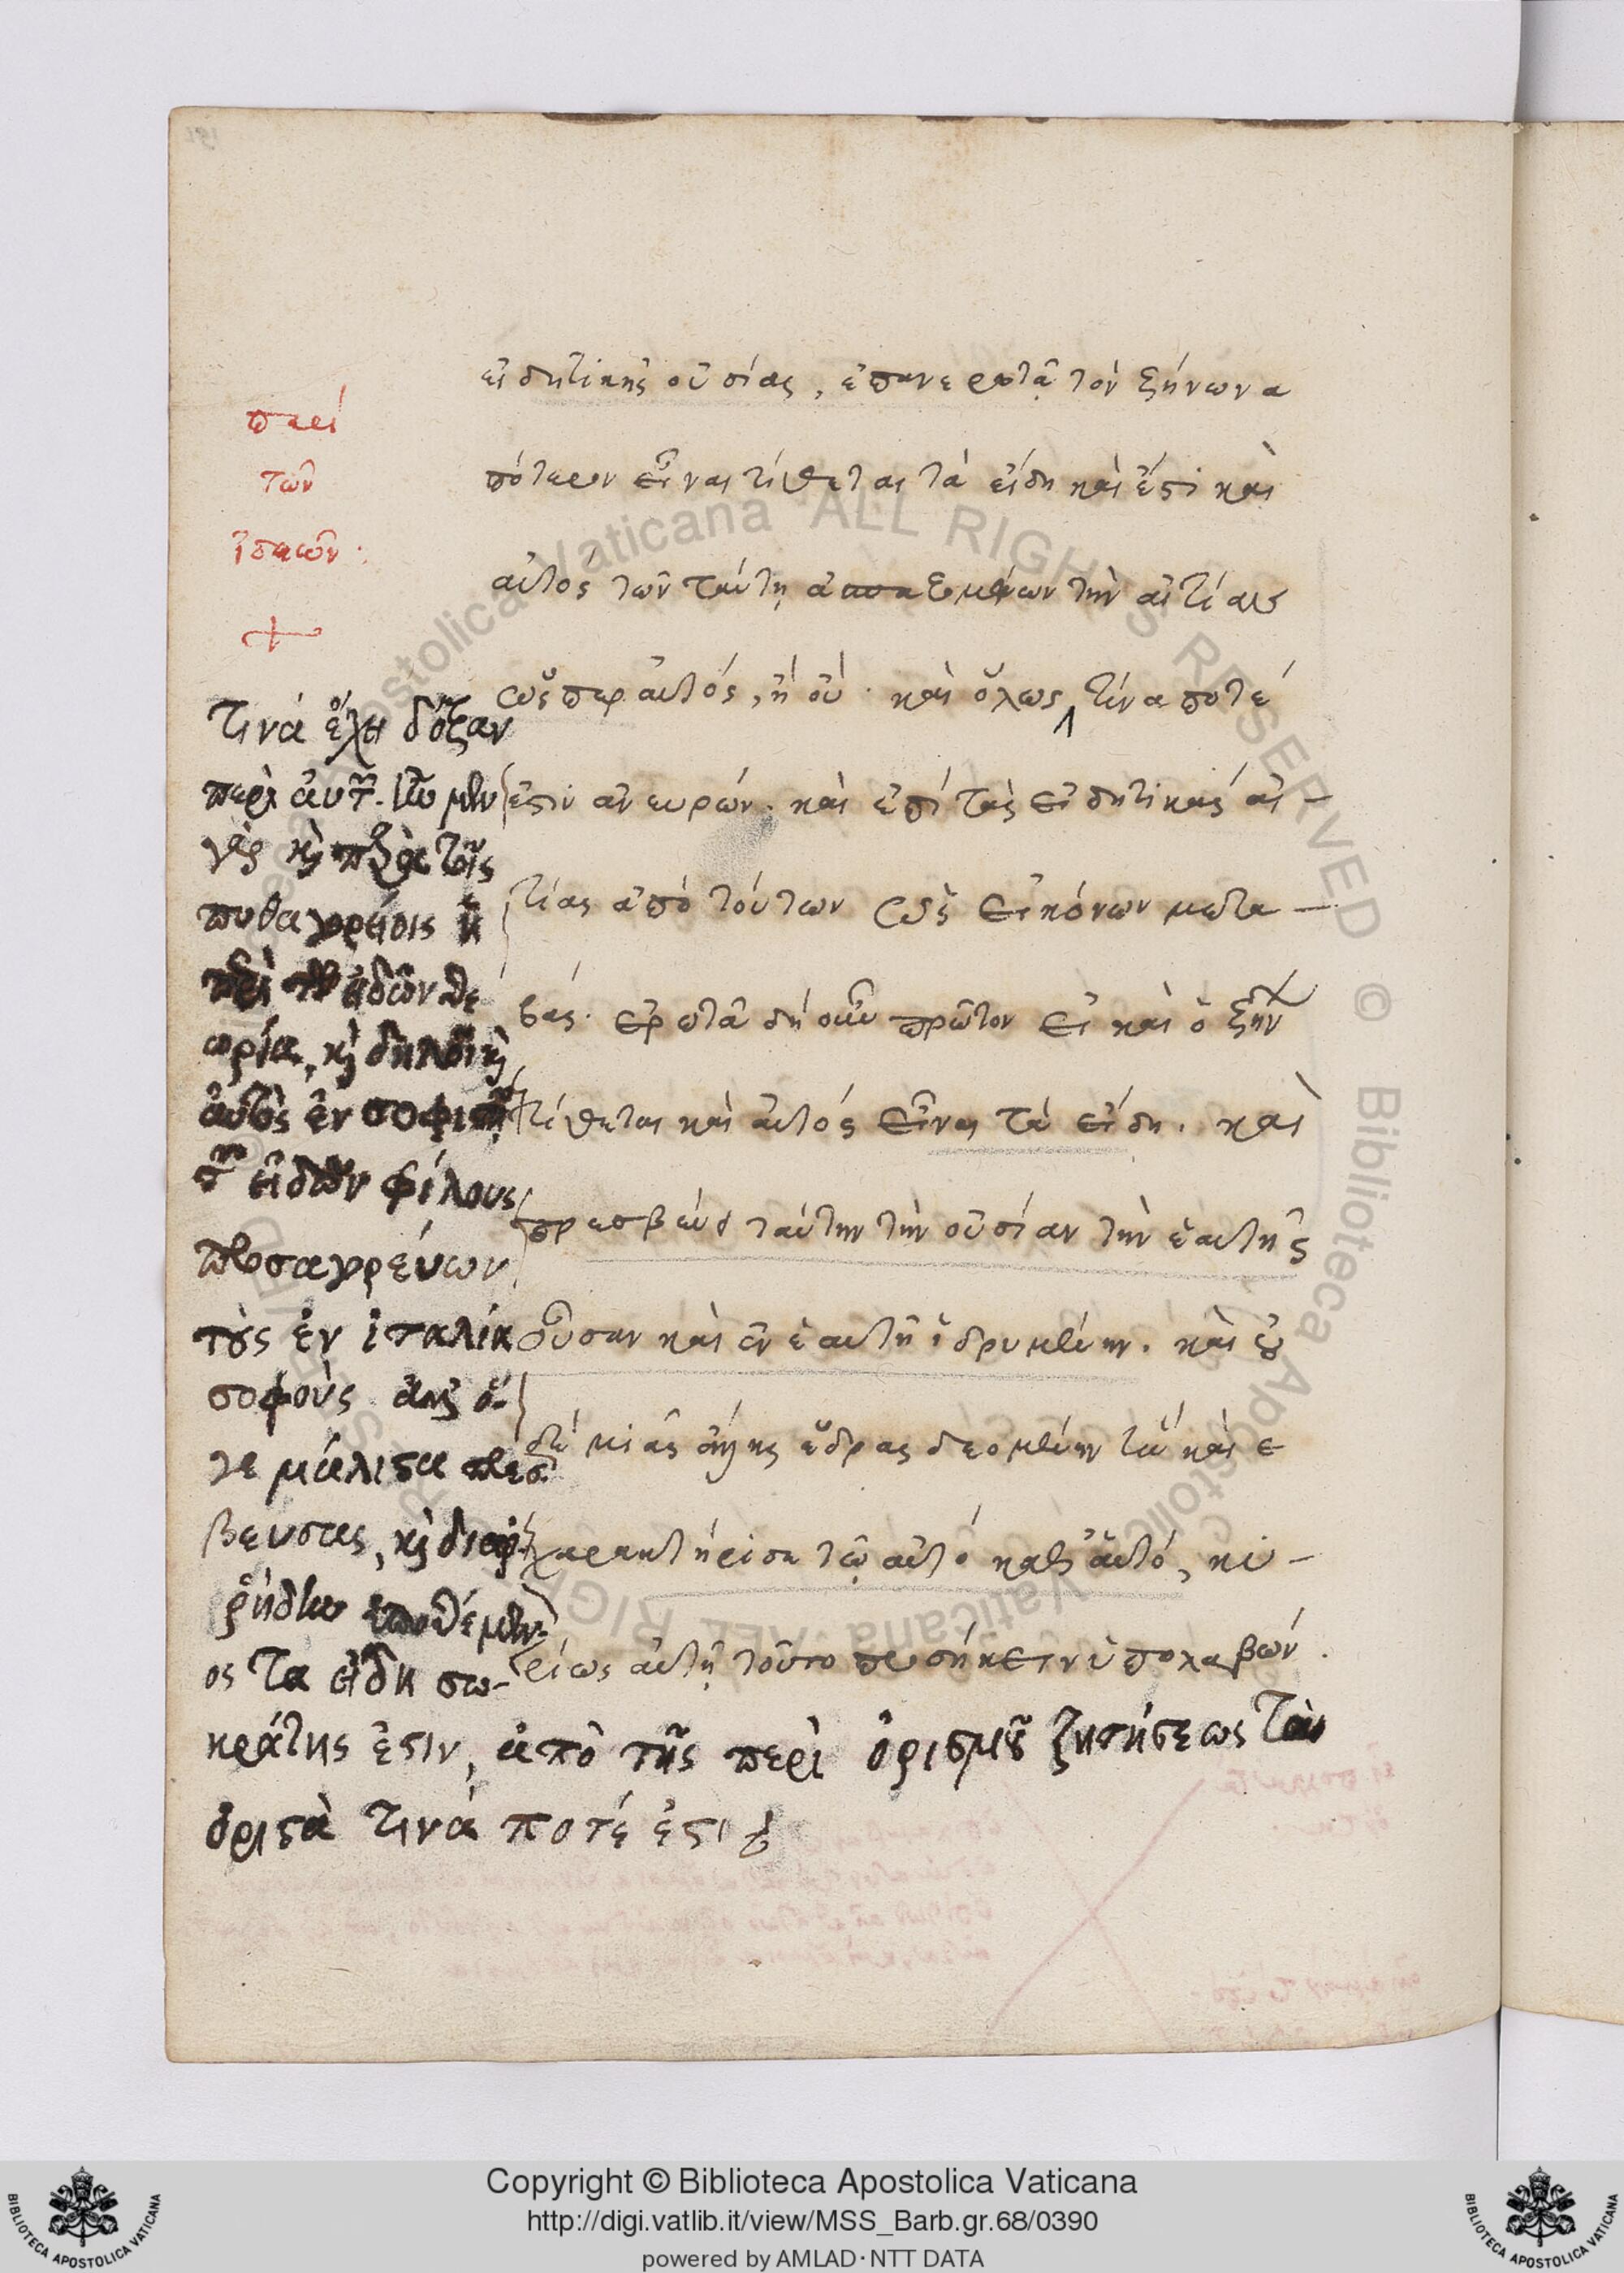 εἰδητικῆς οὐσίας, ἐπανερωτᾷ τὸν ζήνωνα
πότερον εἶναι τίθεται τὰ εἴδη καὶ ἔστι καὶ
αὐτὸς τῶν ταύτῃ τὴν αἰτίαν
ὥσπερ αὐτός, ἢ οὔ. καὶ ὅλως τίνα ποτέ
ἐστιν ἀνευρών. καὶ ἐπὶ τὰς εἰδητικὰς αἰ-
τίας ἀπὸ τούτων ὡς εἰκόνων μετα-
βάς. ἐρωτᾷ δὴ οὖν πρῶτον εἰ καὶ ὁ ζήν
τίθεται καὶ αὐτὸς εἶναι τὰ εἴδη. καὶ
πρεσβεύει ταύτην τὴν οὐσίαν τὴν ἑαυτῆς
οὖσαν καὶ ἐν ἑαυτῇ ἱδρυμένην. καὶ οὐ
δεμιᾶς ἄλλης ἕδρας δεομένην
χαρακτήρισε τῷ αὐτὸ καθ' αὑτό, κυ-
ρίως αὐτῇ τοῦτο προσήκειν ὑπολαβών.
περὶ
τῶν
ἰδεῶν.
τινὰ ἔχει δόξαν
περὶ αὐτῶν. ἦν μὲν
γὰρ καὶ παρὰ τοῖς
πυθαγορείοις ἡ
περὶ τῶν εἰδῶν θε
ωρία, καὶ δηλοῖ καὶ
αὐτὸς ἐν σοφιστῇ
τῶν εἰδῶν φίλους
προσαγορεύων
τοὺς ἐν ἰταλίᾳ
σοφοὺς ἀλλ' ὅ
γε μάλιστα πρεσ
βεύσας, καὶ διαρ
ρήδην ὑποθέμεν
ος τὰ εἴδη σω-
κράτης ἐστιν, ἀπὸ τῆς περὶ ὁρισμοῦ ζητήσεως
ὁριστὰ τινά ποτέ ἐστι
Copyright © Biblioteca Apostolica Vaticana
http://digi.vatlib.it/view/MSS_Barb.gr.68/0390
powered by AMLAD·NTT DATA
BIBLIOTECA APOSTOLICA VATICANA
BIBLIOTECA APOSTOLICA VATICANA